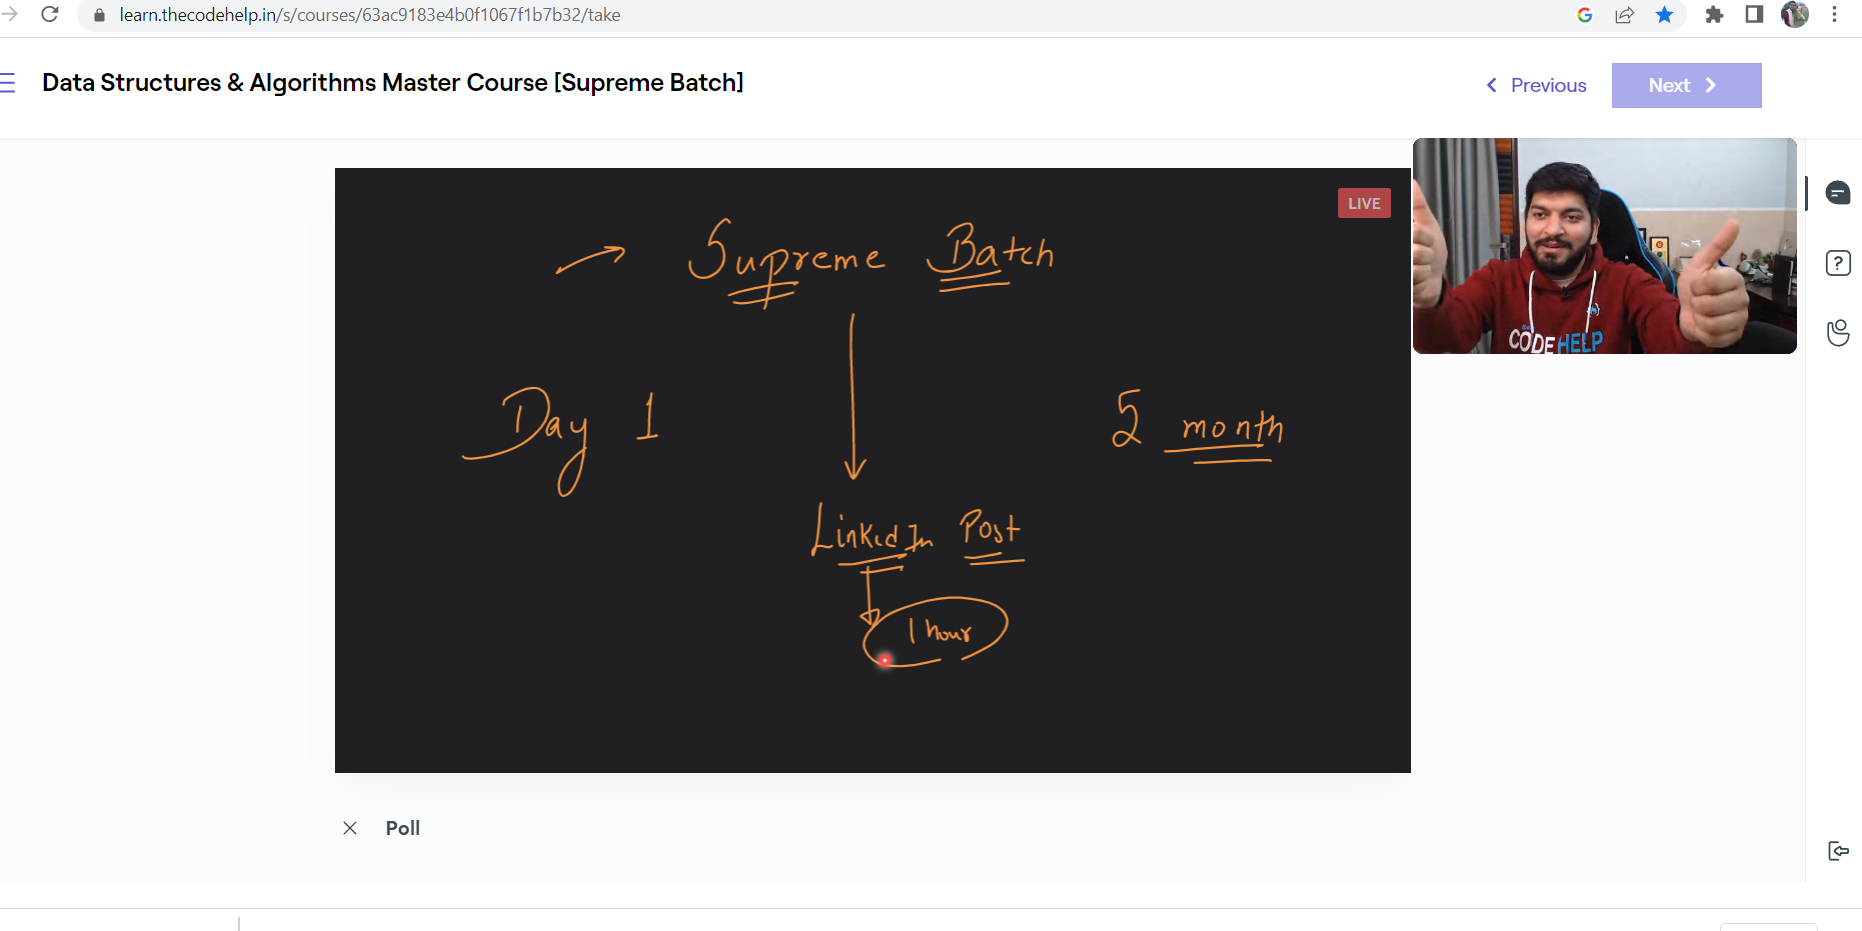 learn.thecodehelp.in/s/courses/63ac9183e4b0f1067f1b7b32/take
Data Structures & Algorithms Master Course [Supreme Batch]
Previous
Next
LIVE
Supreme Batch
Day 1
5 month
LinkedIn Post
1 hour
CODEHELP
Poll